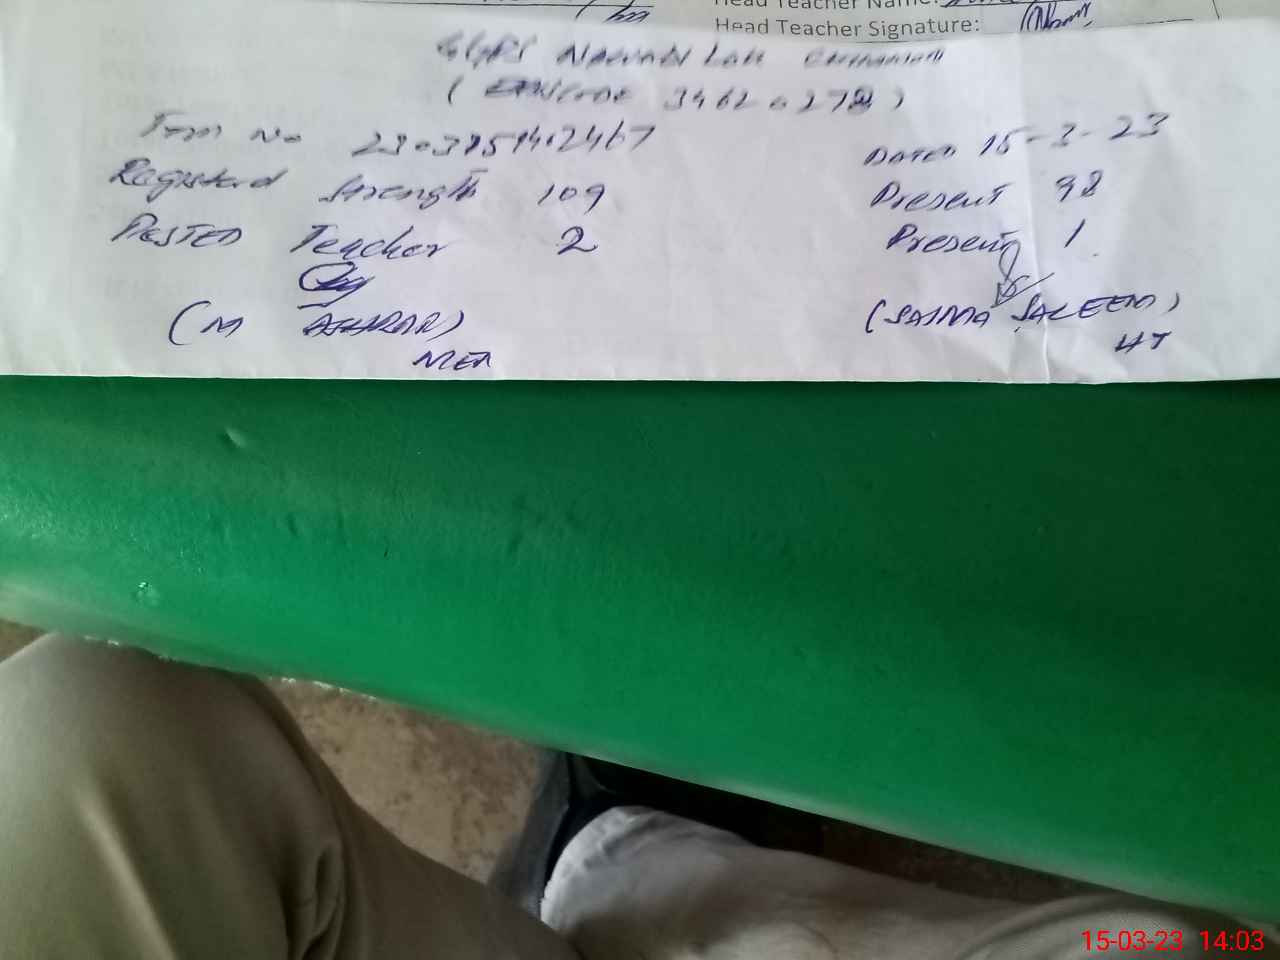 Head Teacher Name:
Head Teacher Signature:
GGPS
(EMISCODE 34620278)
Form No 2303151402467 Dated 15-3-23
Registerd Strength 109 Present 98
Posted Teacher 2 Present 1
(M ) (SAIMA SALEEM)
MEA HT
15-03-23 14:03